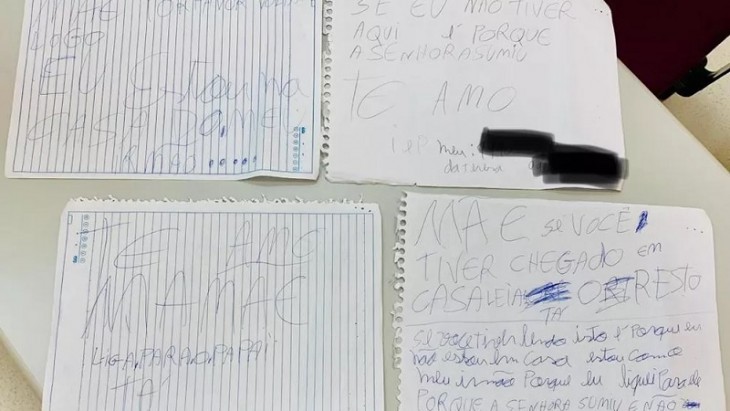 MAE POR FAVOR
LOGO
EU Estou na
CASA DO MEU
RMÃO.....
SE EU NÃO TIVER
AQUI é PORQUE
A SENHORA SUMIU
TE AMO
meu:
TE AMO
MAMAE
LIGA PARA O PAPAI
TA
MAE se VOCÊ
TIVER CHEGADO EM
CASA LEIA O RESTO
TA
se voce tiver lendo isto é Porque eu
não estou em casa estou com o
meu irmão Porque eu liguei Para ele
PORQUE A SENHORA SUMIU E NÃO